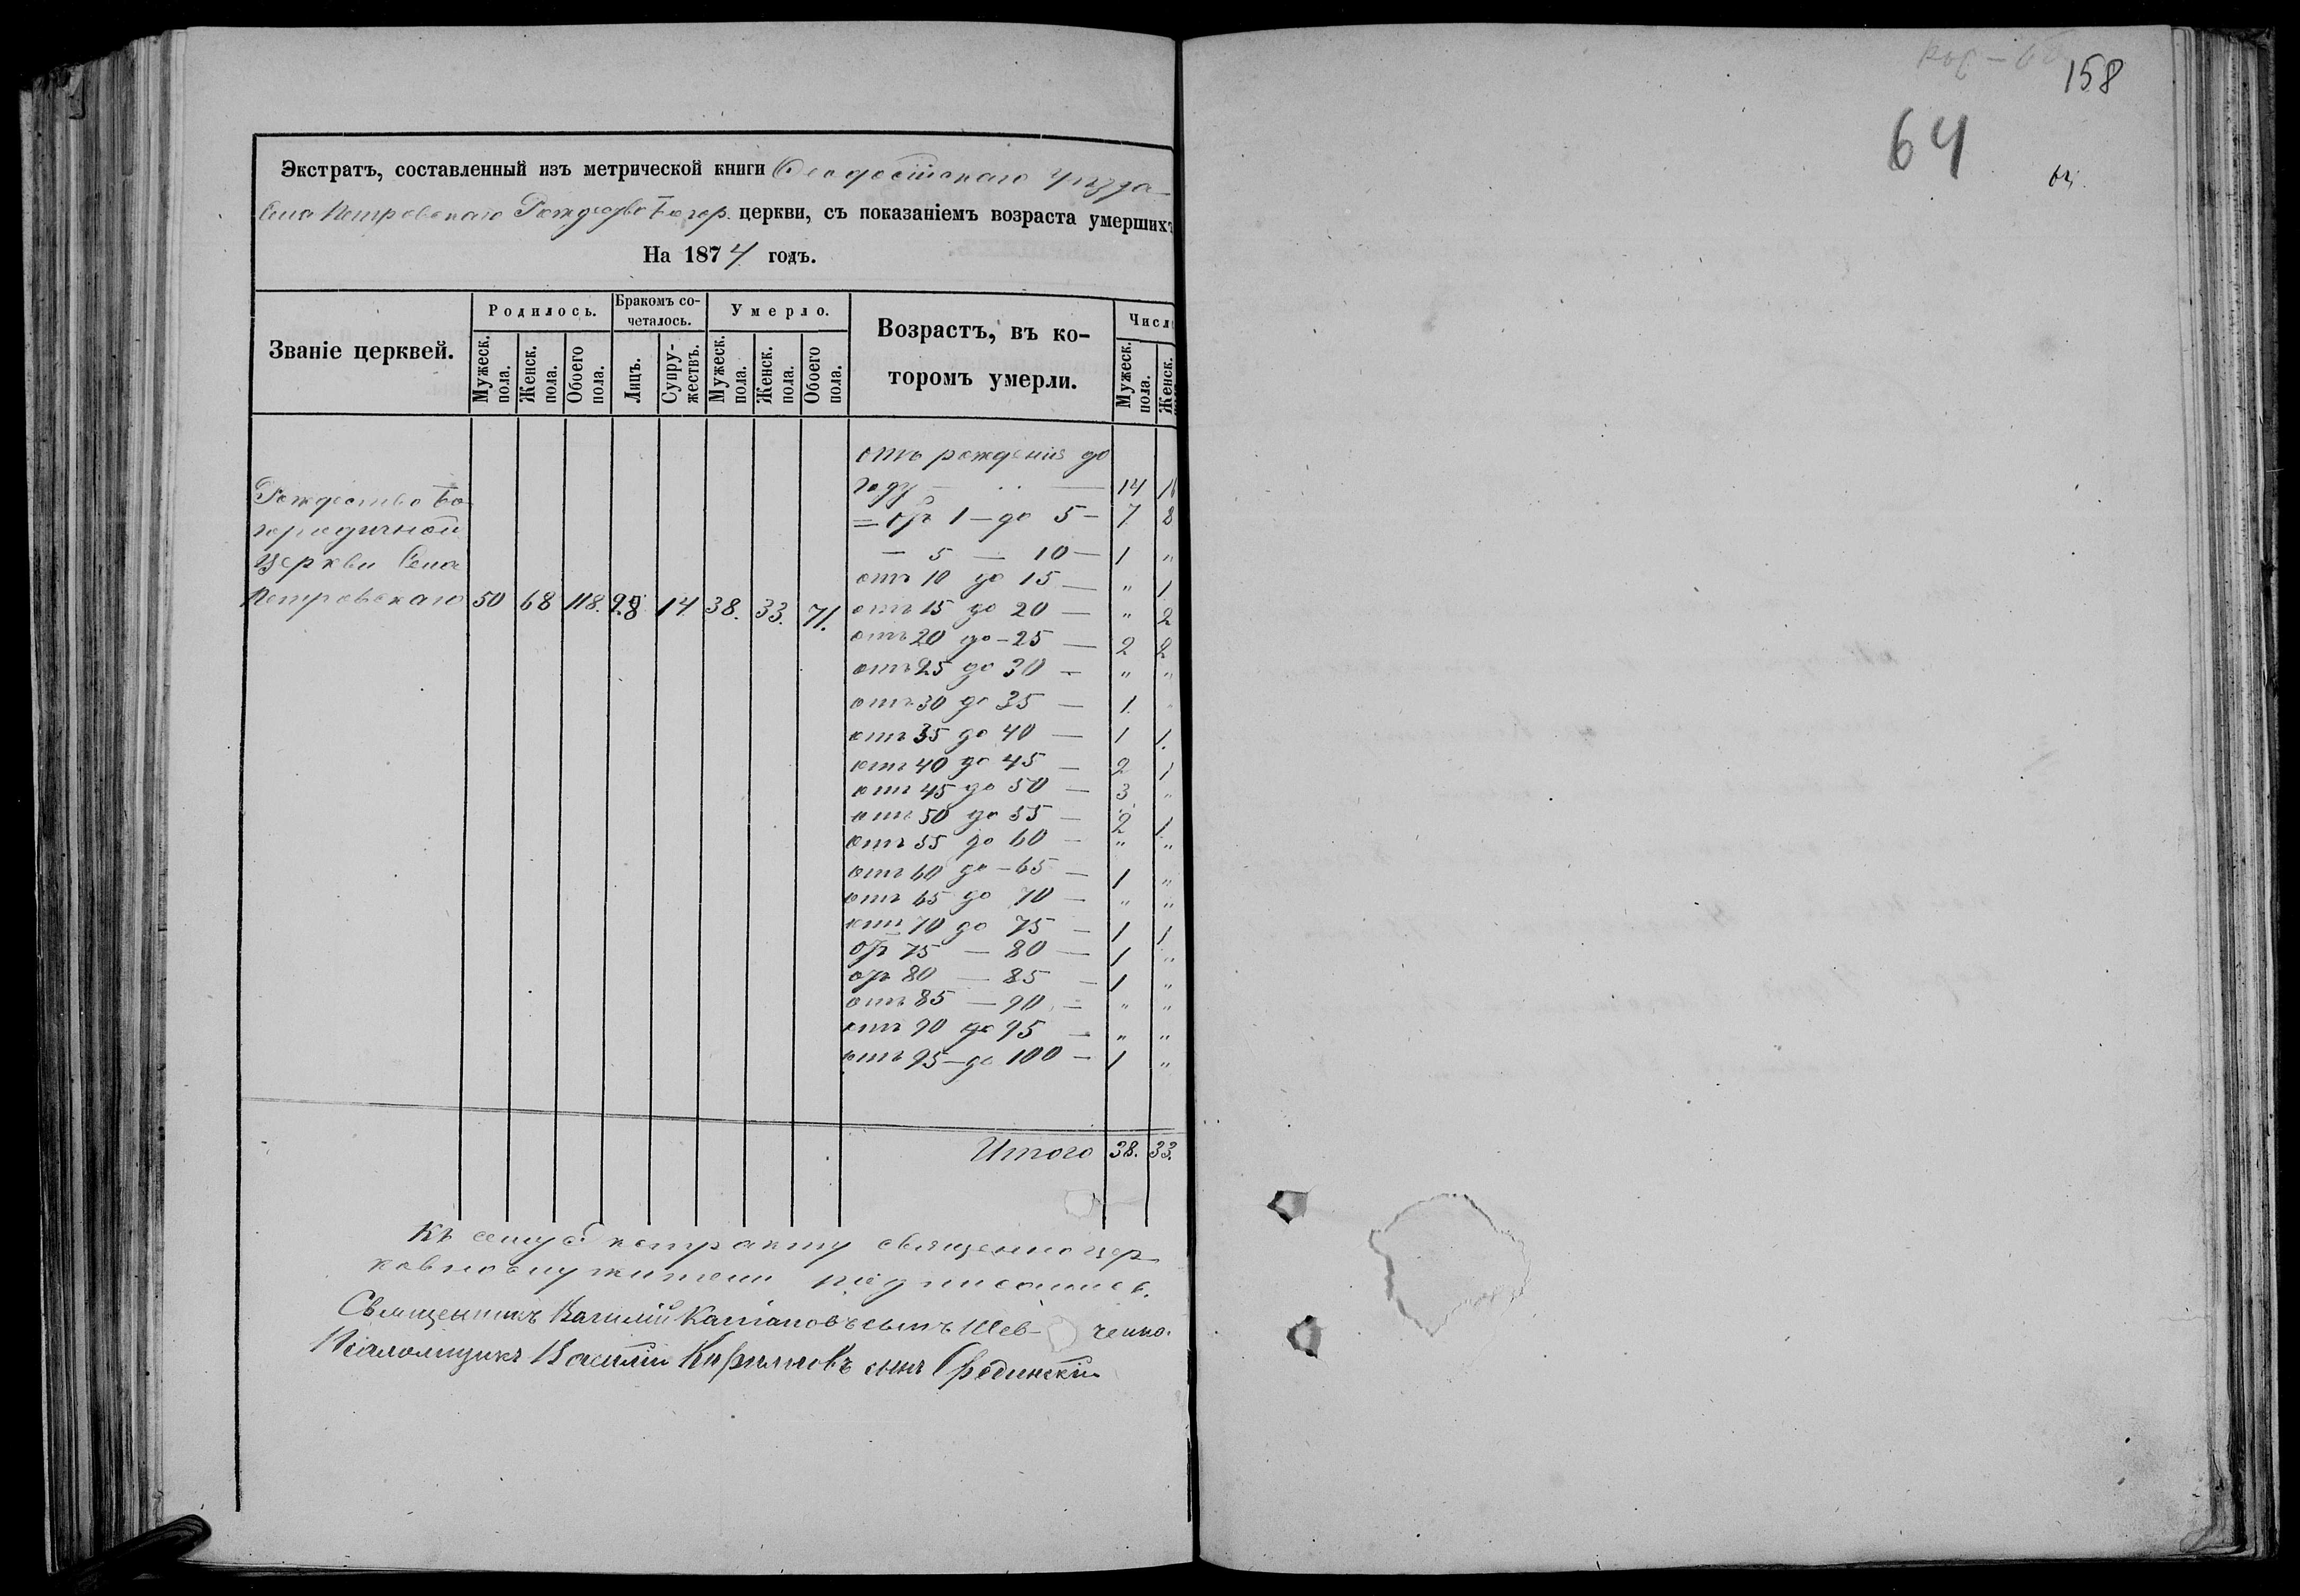 Экстратъ, составленный изъ метрической книги Ѳеодосійскаго уѣзда
Села Петровскаго Рождество Богор. церкви, съ показаніемъ возраста умершихъ
На 1874 годъ.
Званіе церквей.
Родилось.
Мужеск. пола.
Женск. пола.
Обоего пола.
Бракомъ со-
четалось.
Лицъ.
Супру-
жествъ.
Умерло.
Мужеск. пола.
Женск. пола.
Обоего пола.
Возрастъ, въ ко-
торомъ умерли.
Числ
Мужеск. пола.
Женск.
Рождество Бо-
городичной
Церкви Села
Петровскаго 50 68 118. 28 14 38. 33. 71.
отъ рожденія до
году — 14
= отъ 1 — до 5 — 7 8
— 5 — 10 — 1 "
отъ 10 до 15 — " 1
отъ 15 до 20 — " 2
отъ 20 до — 25 — 2 2
отъ 25 до 30 — " "
отъ 30 до 35 — 1.
отъ 35 до 40 — 1 1.
отъ 40 до 45 — 2 1
отъ 45 до 50 — 3 "
отъ 50 до 55 — 2 1.
отъ 55 до 60 — " "
отъ 60 до — 65 — 1 "
отъ 65 до 70 — " "
отъ 70 до 75 — 1 1
отъ 75 — 80 — 1 "
отъ 80 — 85 — 1 "
отъ 85 — 90 — " "
отъ 90 до 95 — " "
отъ 95 — до 100 — 1 "
Итого 38. 33.
Къ сему священноцер-
ковнослужители подписались.
Священникъ Василій сынъ Шев- ченко.
Псаломщикъ Василій Кириловъ сынъ
158
64